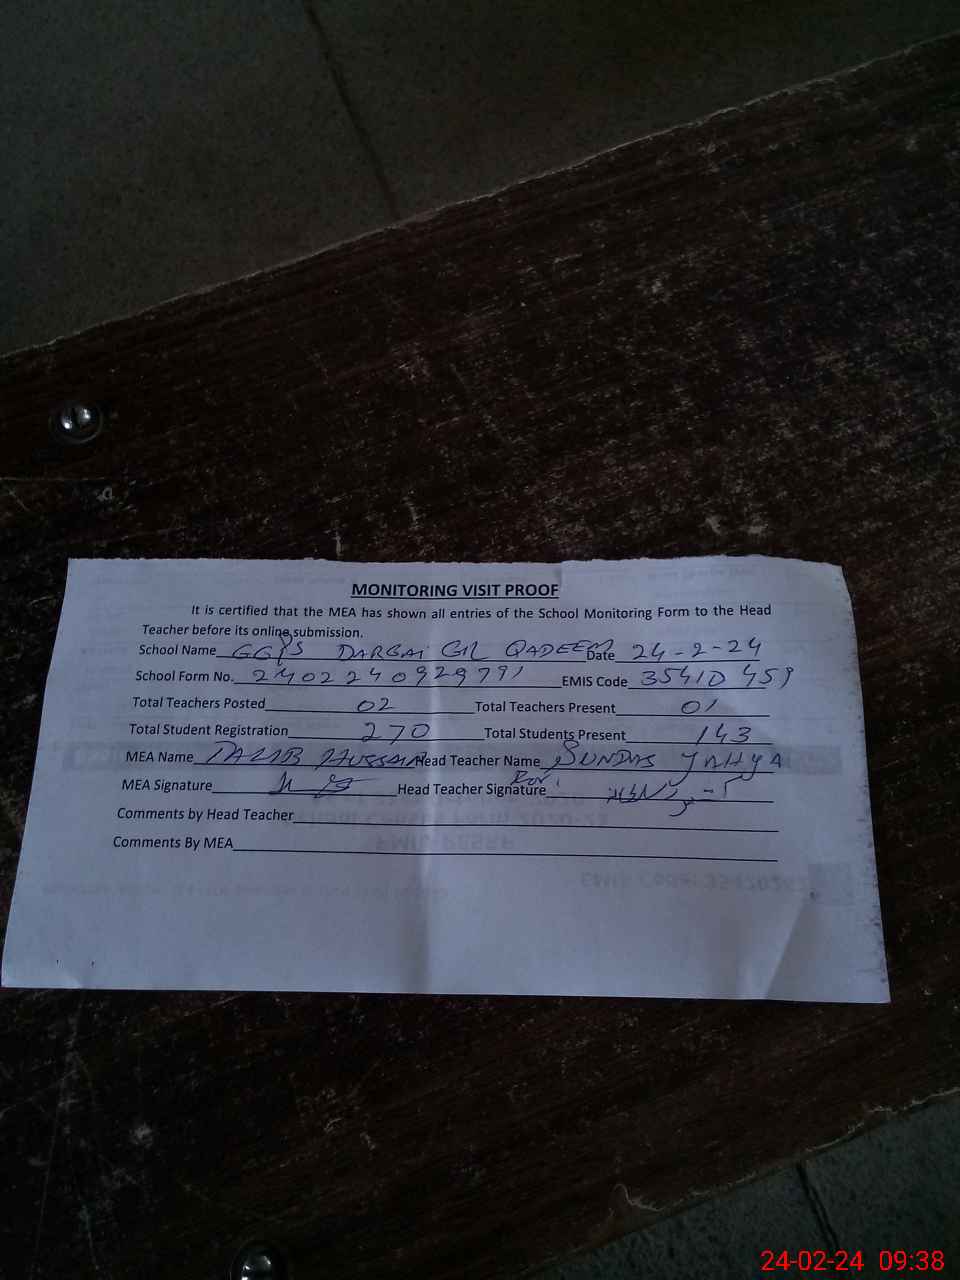 MONITORING VISIT PROOF
It is certified that the MEA has shown all entries of the School Monitoring Form to the Head
Teacher before its online submission.
School Name GGPS DARGAI GIL QADEEM Date 24-2-24
School Form No. 2402240929791 EMIS Code 35410459
Total Teachers Posted 02 Total Teachers Present 01
Total Student Registration 270 Total Students Present 143
MEA Name TALIB HUSSAIN Head Teacher Name SUNDAS YAHYA
MEA Signature Head Teacher Signature
Comments by Head Teacher
Comments By MEA
24-02-24 09:38